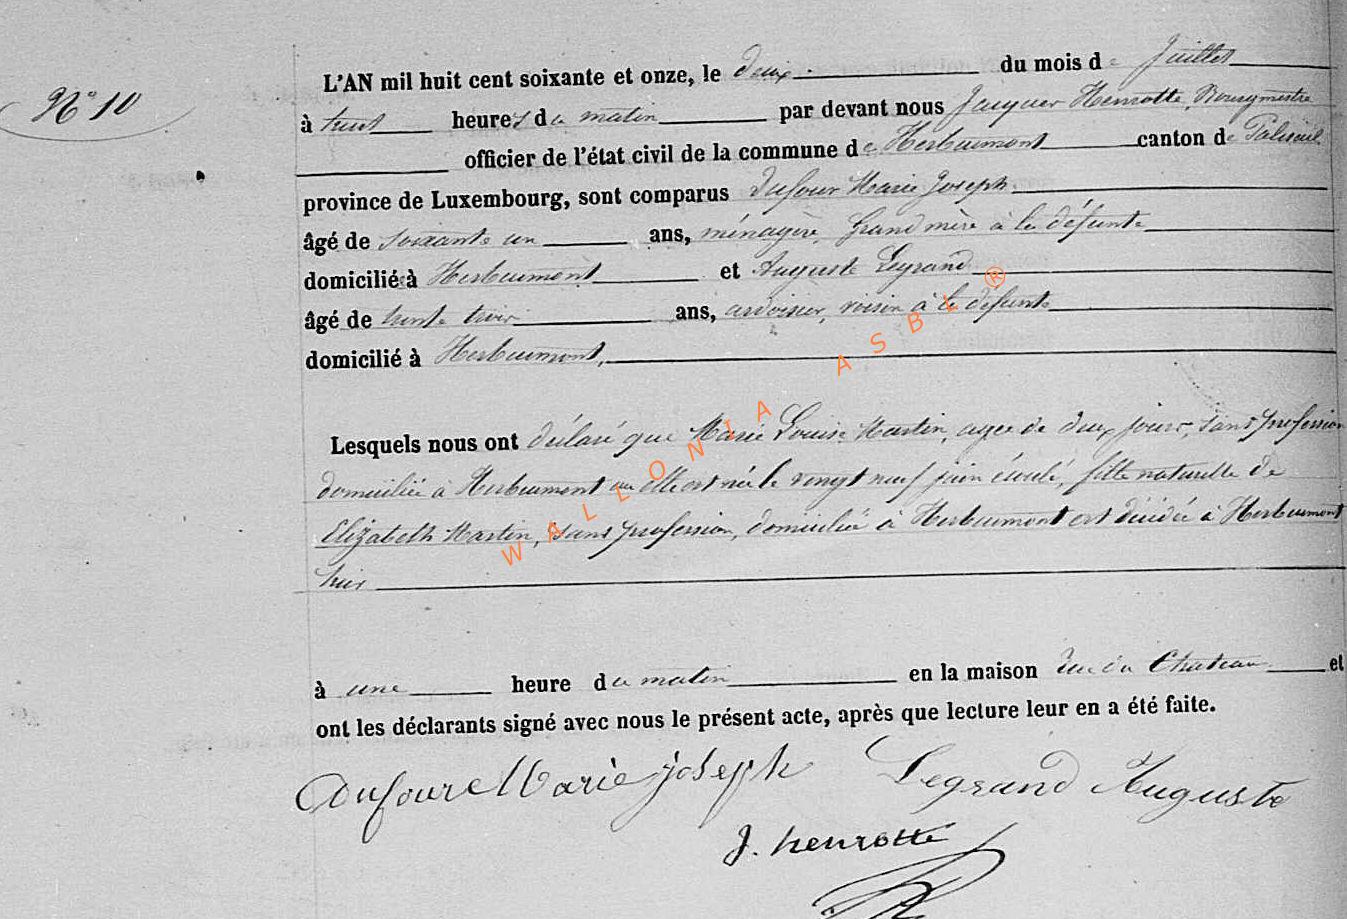 N° 10
L'AN mil huit cent soixante et onze, le deux du mois de Juillet
à huit heures du matin par devant nous Jacques Henrotte, Bourgmestre
officier de l'état civil de la commune de Herbeumont canton de Paliseul
province de Luxembourg, sont comparus Dufour Marie Joseph
âgé de soixante un ans, ménagère, Grand mère à la défunte
domicilié à Herbeumont et Auguste Legrand
âgé de trente trois ans, ardoisier, voisin à la défunte
domicilié à Herbeumont,
Lesquels nous ont déclaré que Marie Louise Martin, agée de deux jours, sans profession
domiciliée à Herbeumont ou elle est née le vingt neuf juin écoulé, fille naturelle de
Elizabeth Martin, sans profession, domiciliée à Herbeumont est décédée à Herbeumont
hier
à une heure du matin en la maison rue du Chateau et
ont les déclarants signé avec nous le présent acte, après que lecture leur en a été faite.
Dufour Marie joseph Legrand Auguste
J. henrotte
WALLONIA ASBL ®